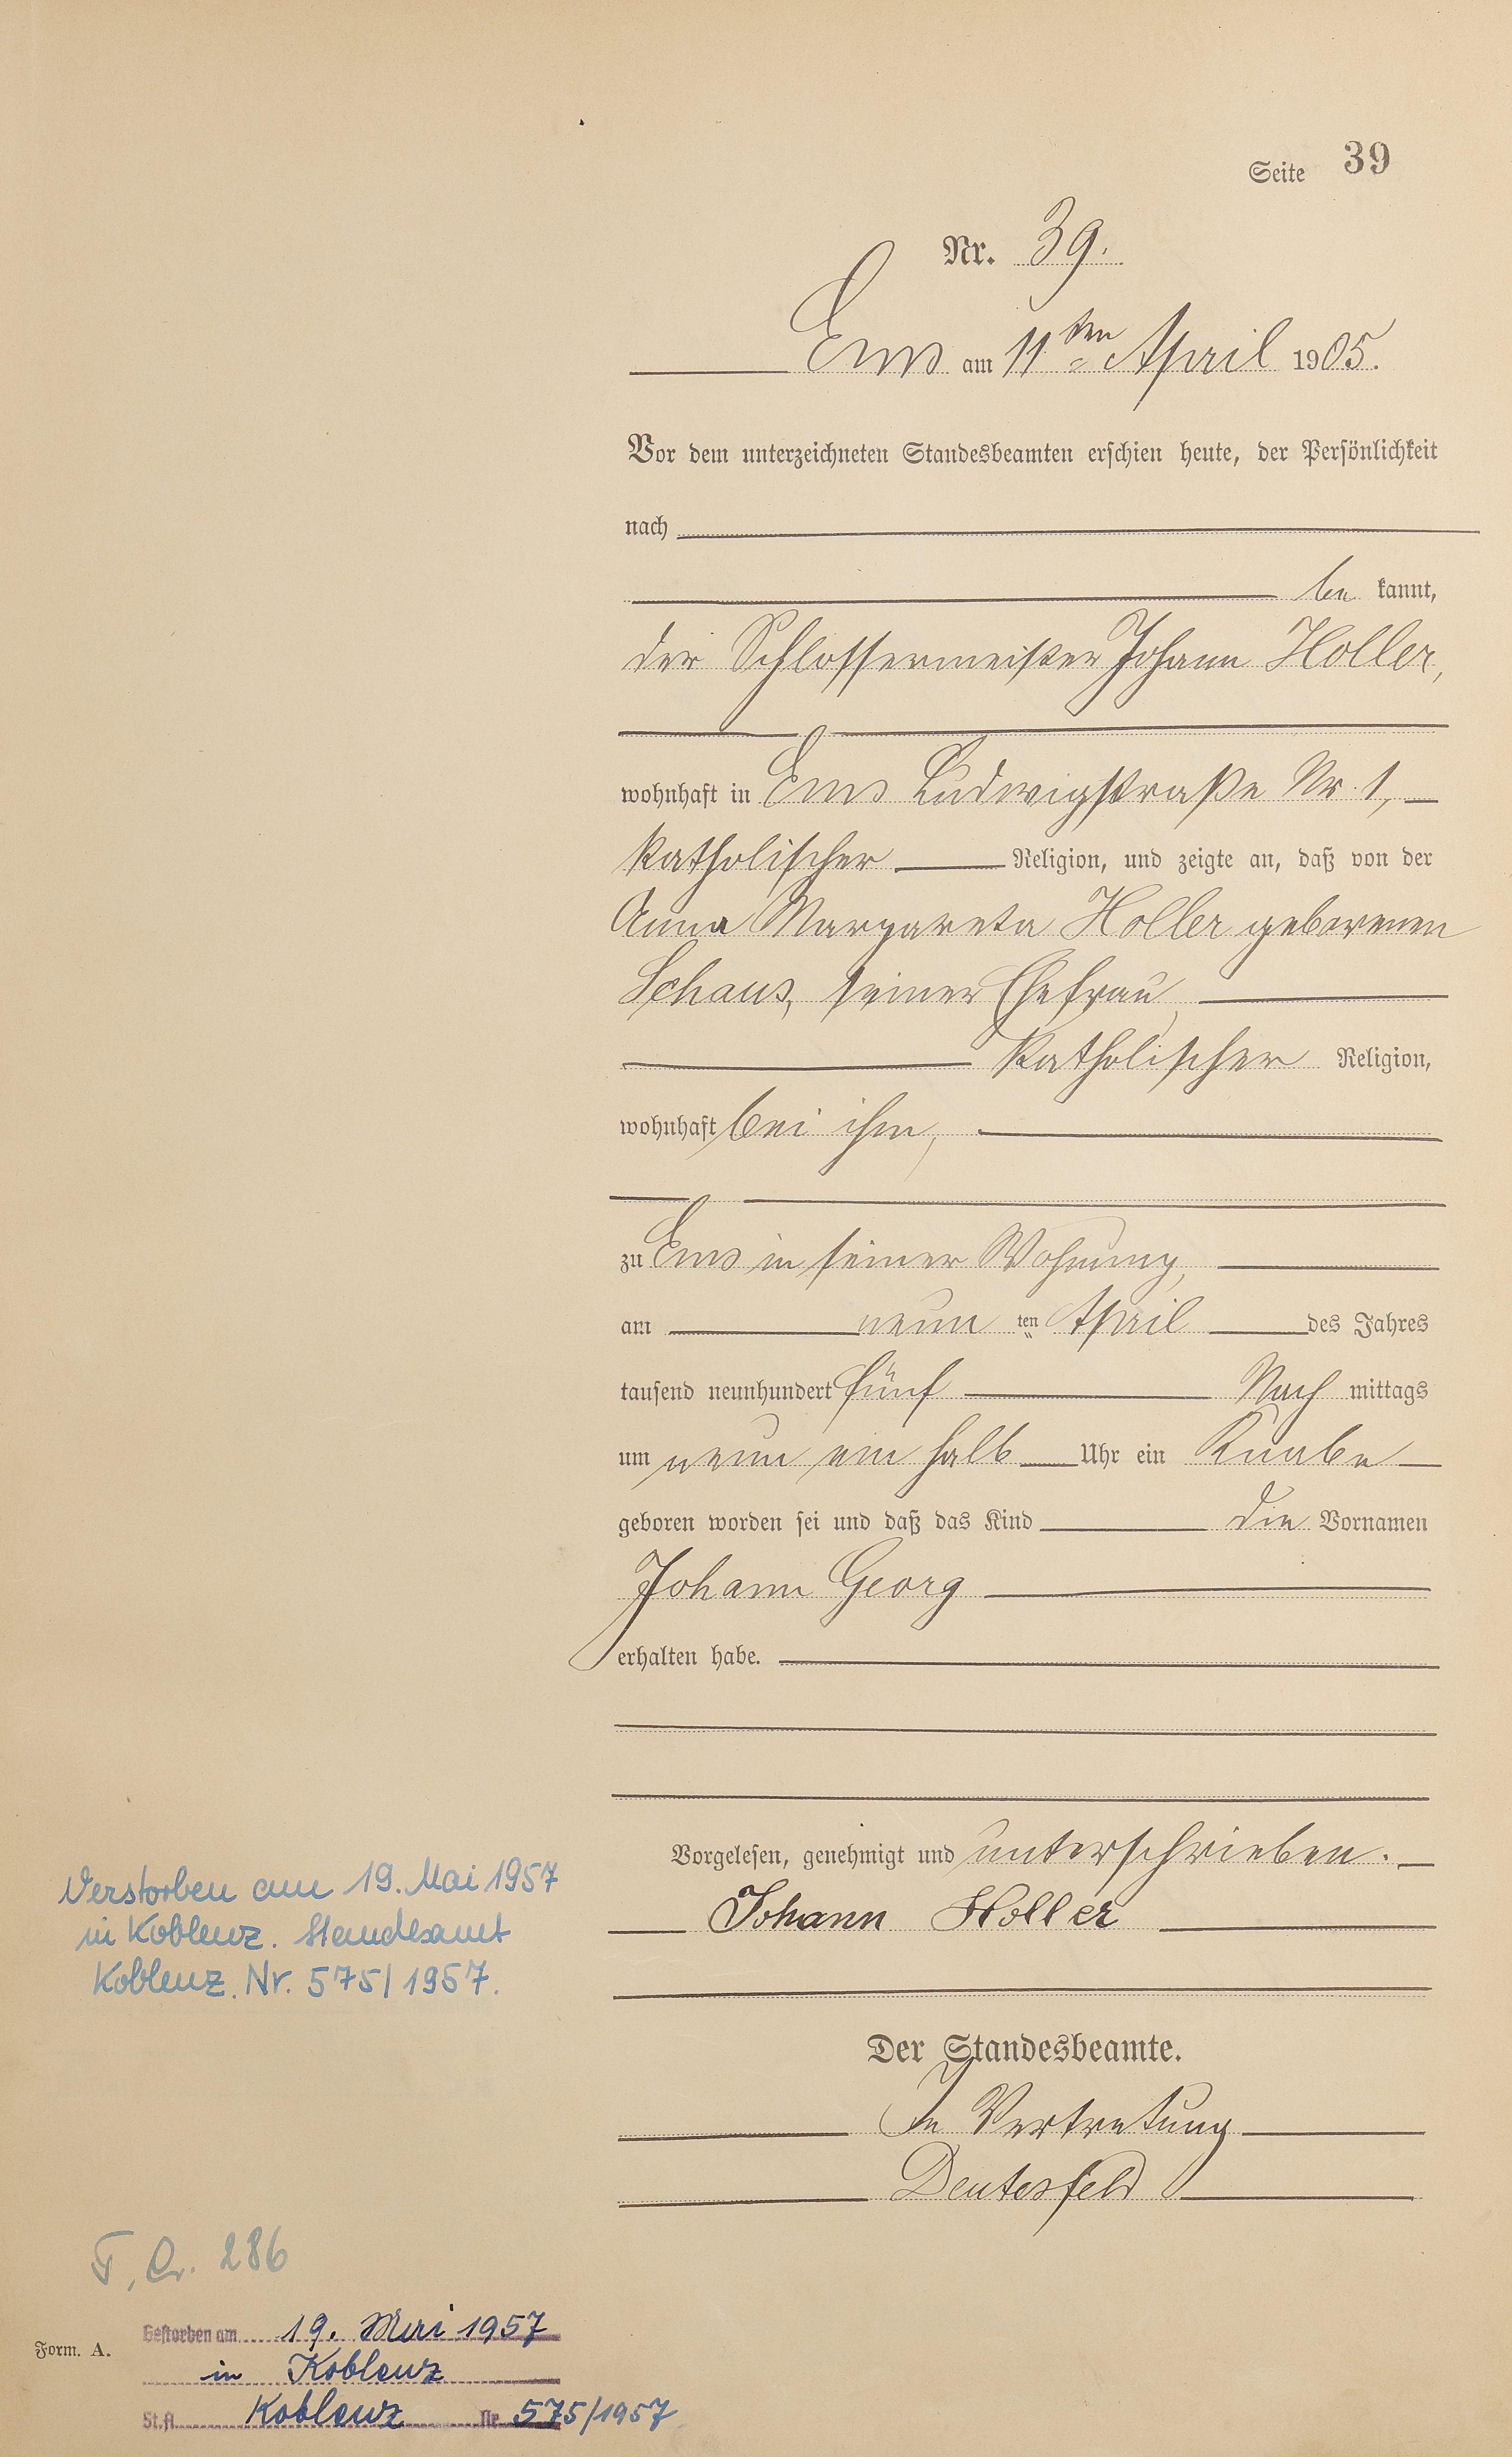 Seite 39
Nr. 39.
Ems am 11ten April 1905.
Vor dem unterzeichneten Standesbeamten erschien heute, der Persönlichkeit
nach
be kannt,
der Schlossermeister Johann Holler,
wohnhaft in Ems Ludwigstraße Nr. 1,
katholischer Religion, und zeigte an, daß von der
Anna Margareta Holler geborenen
Schaus, seiner Ehefrau,
katholischer Religion,
wohnhaft bei ihm,
zu Ems in seiner Wohnung,
am neun ten April des Jahres
tausend neunhundert fünf Nach mittags
um neun ein halb Uhr ein Knabe
geboren worden sei und daß das Kind die Vornamen
Johann Georg
erhalten habe.
Vorgelesen, genehmigt und unterschrieben.
Johann Holler
Der Standesbeamte.
In Vertretung
Deutesfeld
Verstorben am 19. Mai 1957
in Koblenz. Standesamt
Koblenz. Nr. 575/1957.
286
Gestorben am 19. Mai 1957
Form. A.
in Koblenz
St.A. Koblenz Nr. 575/1957